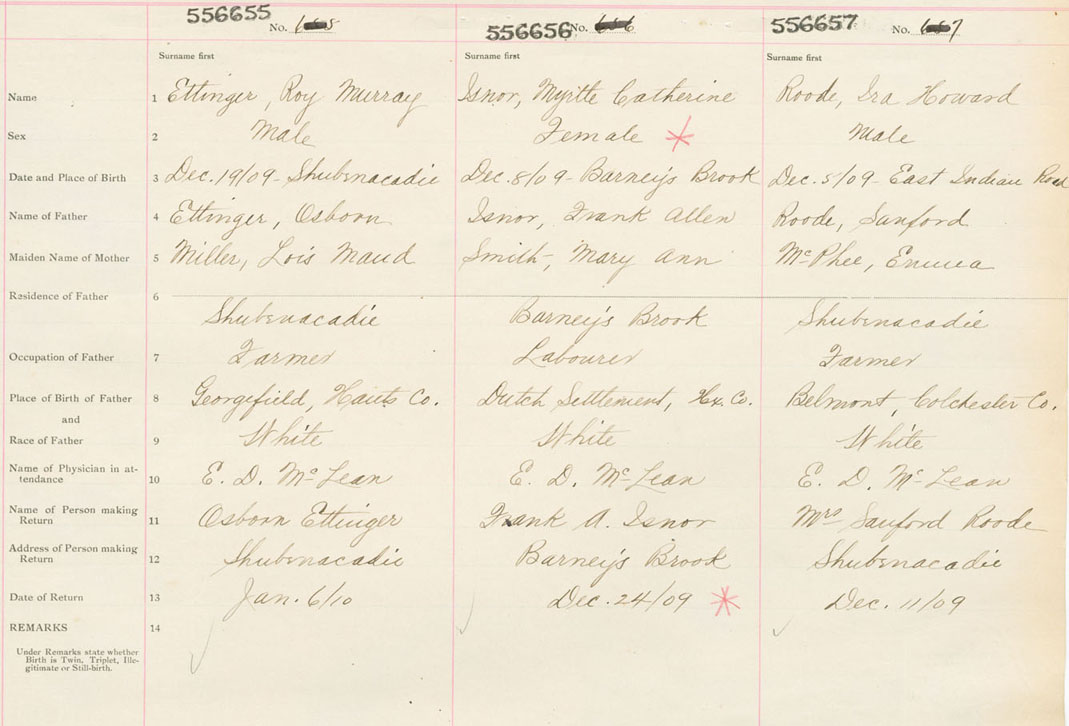 556655 No.
556656 No.
556657 No.
Surname first Surname first Surname first
Name 1 Ettinger, Roy Murray Isnor, Myrtle Catherine Roode, Ira Howard
Sex 2 Male Female Male
Date and Place of Birth 3 Dec. 19/09 - Shubenacadie Dec. 8/09 - Barney's Brook Dec. 5/09 - East Indian Road
Name of Father 4 Ettinger, Osborn Isnor, Frank Allen Roode, Sanford
Maiden Name of Mother 5 Miller, Lois Maud Smith, Mary Ann McPhee, Emma
Residence of Father 6
Shubenacadie Barney's Brook Shubenacadie
Occupation of Father 7 Farmer Labourer Farmer
Place of Birth of Father 8 Georgefield, Hants Co. Dutch Settlement, Hx. Co. Belmont, Colchester Co.
and
Race of Father 9 White White White
Name of Physician in at-
tendance 10 E. D. McLean E. D. McLean E. D. McLean
Name of Person making
Return 11 Osborn Ettinger Frank A. Isnor Mrs Sanford Roode
Address of Person making
Return 12 Shubenacadie Barney's Brook Shubenacadie
Date of Return 13 Jan. 6/10 Dec. 24/09 Dec. 11/09
REMARKS 14
Under Remarks state whether
Birth is Twin, Triplet, Ille-
gitimate or Still-birth.